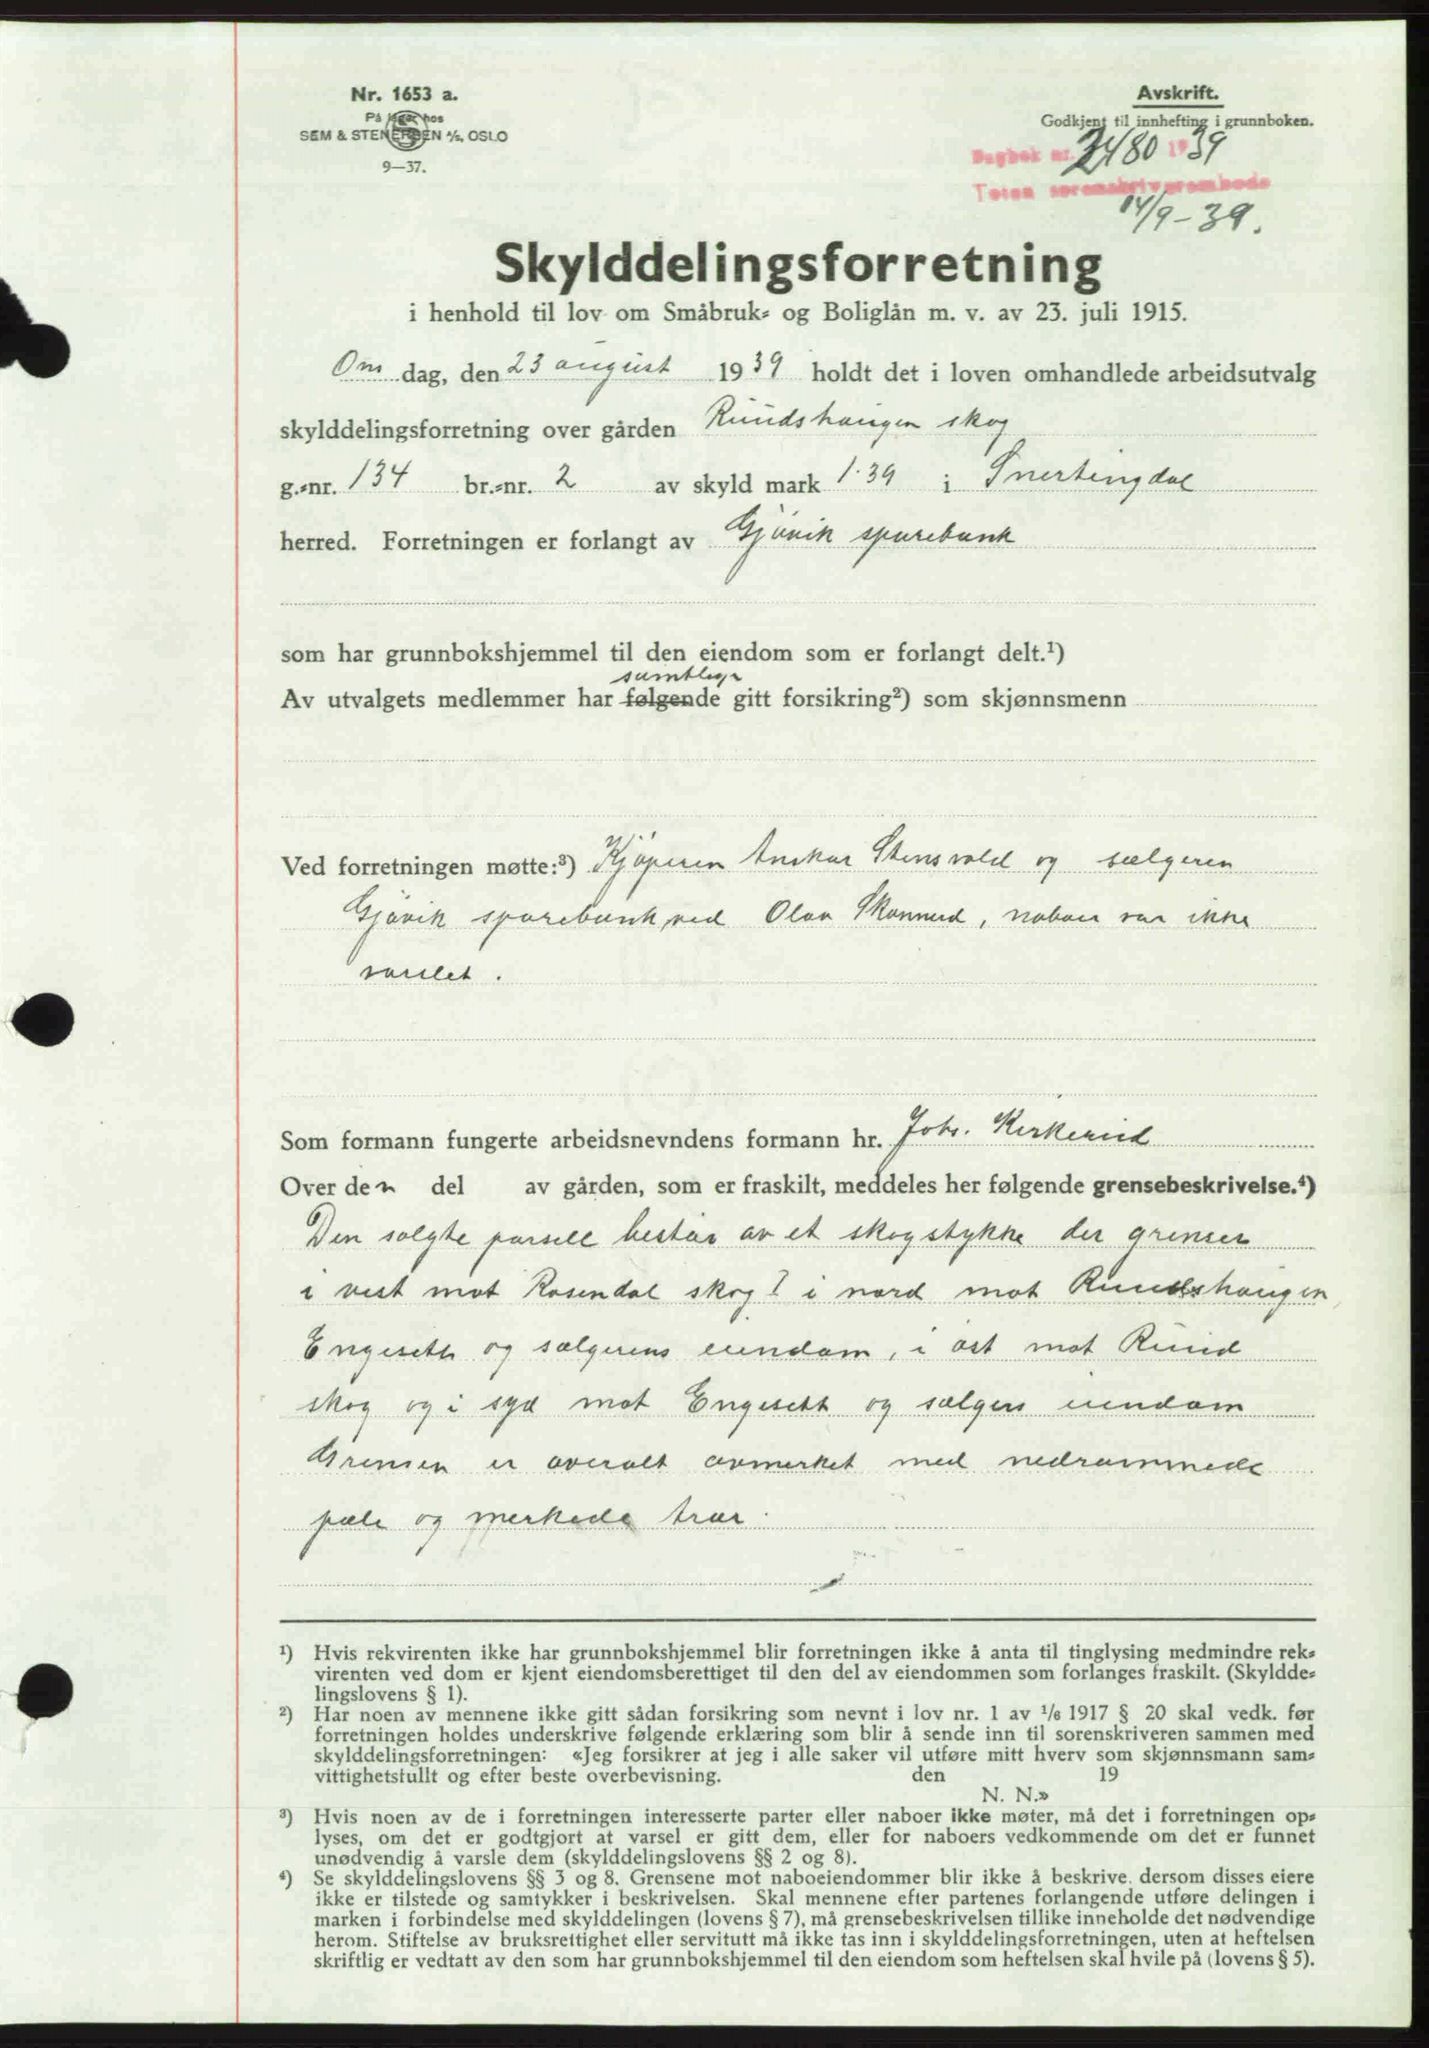 Nr. 1653 a.
På lager hos
SEM & STENERSEN A/S, OSLO
9—37.
Avskrift.
Godkjent til innhefting i grunnboken.
Dagbok nr. 2480 1939
Toten sorenskriverembede
14/9-39.
Skylddelingsforretning
i henhold til lov om Småbruk- og Boliglån m. v. av 23. juli 1915.
Ons dag, den 23 august 1939 holdt det i loven omhandlede arbeidsutvalg
skylddelingsforretning over gården Ruudshaugen skog
g.-nr. 134 br.-nr. 2 av skyld mark 1.39 i Snertingdal
herred. Forretningen er forlangt av Gjövik sparebank
som har grunnbokshjemmel til den eiendom som er forlangt delt.¹)
samtlige
Av utvalgets medlemmer har følgende gitt forsikring²) som skjønnsmenn
Ved forretningen møtte:³) Kjöperen Anskar Stensvold og sælgeren
Gjövik sparebank, ved Olav Skonnerd, naboer var ikke
varslet.
Som formann fungerte arbeidsnevndens formann hr. Johs. Kirkerud
Over den del av gården, som er fraskilt, meddeles her følgende grensebeskrivelse.⁴)
Den solgte parsell består av et skogstykke der grenser
i vest mot Rosendal skog I i nord mot Ruudshaugen,
Engesett og sælgerens eiendom, i øst mot Ruud
skog og i syd mot Engesett og sælgers eiendom
Grensen er overalt avmerket med nedrammede
pæle og merkede trær.
¹) Hvis rekvirenten ikke har grunnbokshjemmel blir forretningen ikke å anta til tinglysing medmindre rek-
virenten ved dom er kjent eiendomsberettiget til den del av eiendommen som forlanges fraskilt. (Skyldde-
lingslovens § 1).
²) Har noen av mennene ikke gitt sådan forsikring som nevnt i lov nr. 1 av ¹/₆ 1917 § 20 skal vedk. før
forretningen holdes underskrive følgende erklæring som blir å sende inn til sorenskriveren sammen med
skylddelingsforretningen: «Jeg forsikrer at jeg i alle saker vil utføre mitt hverv som skjønnsmann sam-
vittighetsfullt og efter beste overbevisning. den 19
N. N.»
³) Hvis noen av de i forretningen interesserte parter eller naboer ikke møter, må det i forretningen op-
lyses, om det er godtgjort at varsel er gitt dem, eller for naboers vedkommende om det er funnet
unødvendig å varsle dem (skylddelingslovens §§ 2 og 8).
⁴) Se skylddelingslovens §§ 3 og 8. Grensene mot naboeiendommer blir ikke å beskrive, dersom disses eiere
ikke er tilstede og samtykker i beskrivelsen. Skal mennene efter partenes forlangende utføre delingen i
marken i forbindelse med skylddelingen (lovens § 7), må grensebeskrivelsen tillike inneholde det nødvendige
herom. Stiftelse av bruksrettighet eller servitutt må ikke tas inn i skylddelingsforretningen, uten at heftelsen
skriftlig er vedtatt av den som har grunnbokshjemmel til den eiendom som heftelsen skal hvile på (lovens § 5).